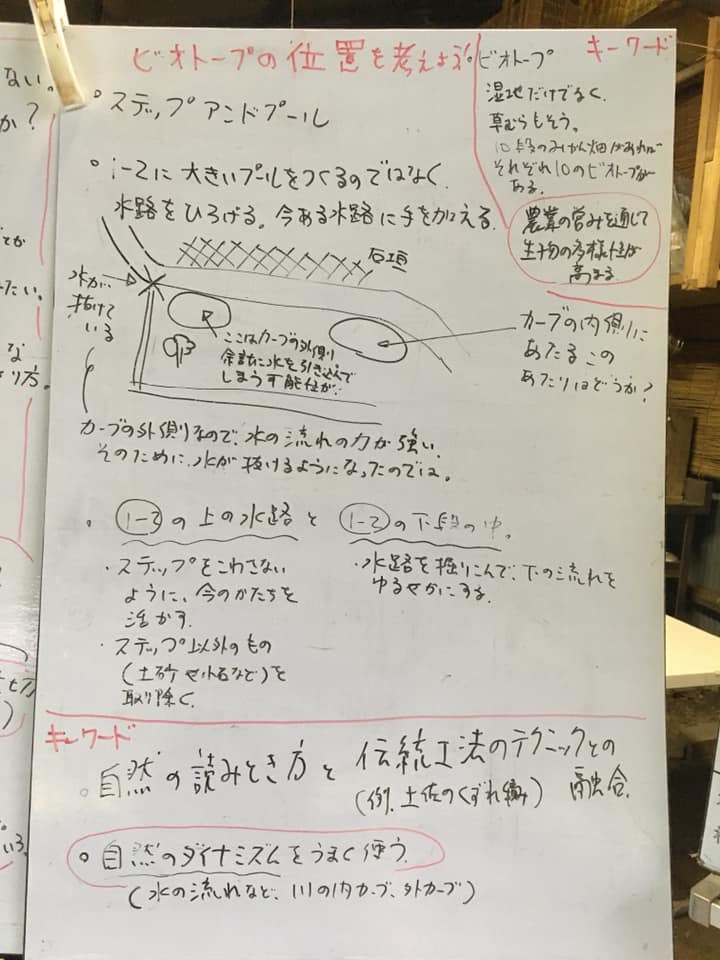 ビオトープの位置を考えよう
キーワード
。ビオトープ
湿地だけでなく、
草むらもそう。
10段のみかん畑があれば
それぞれ10のビオトープが
ある。
農業の営みを通じて
生物の多様性が
高まる
。ステップアンドプール
。1-2に大きいプールをつくるのではなく、
水路をひろげる。今ある水路に手を加える。
石垣
水が
抜けて
いる
ここはカーブの外側
余計に水を引き込んで
しまう可能性が。
カーブの内側に
あたるこの
あたりはどうか？
カーブの外側なので、水の流れの力が強い。
そのために、水が抜けるようになったのでは。
の上の水路と
1-2の下段の中。
・ステップをこわさない
ように、今のかたちを
活かす
・ステップ以外のもの
(土砂や小石など)を
取り除く。
・水路を掘りこんで、下の流れを
ゆるやかにする。
キーワード
。自然の読みとき方と伝統工法のテクニックとの
(例、土佐のくずれ積み) 融合。
。自然のダイナミズムをうまく使う。
(水の流れなど、川の内カーブ、外カーブ)
ない。
か？
たい。
な
り方。